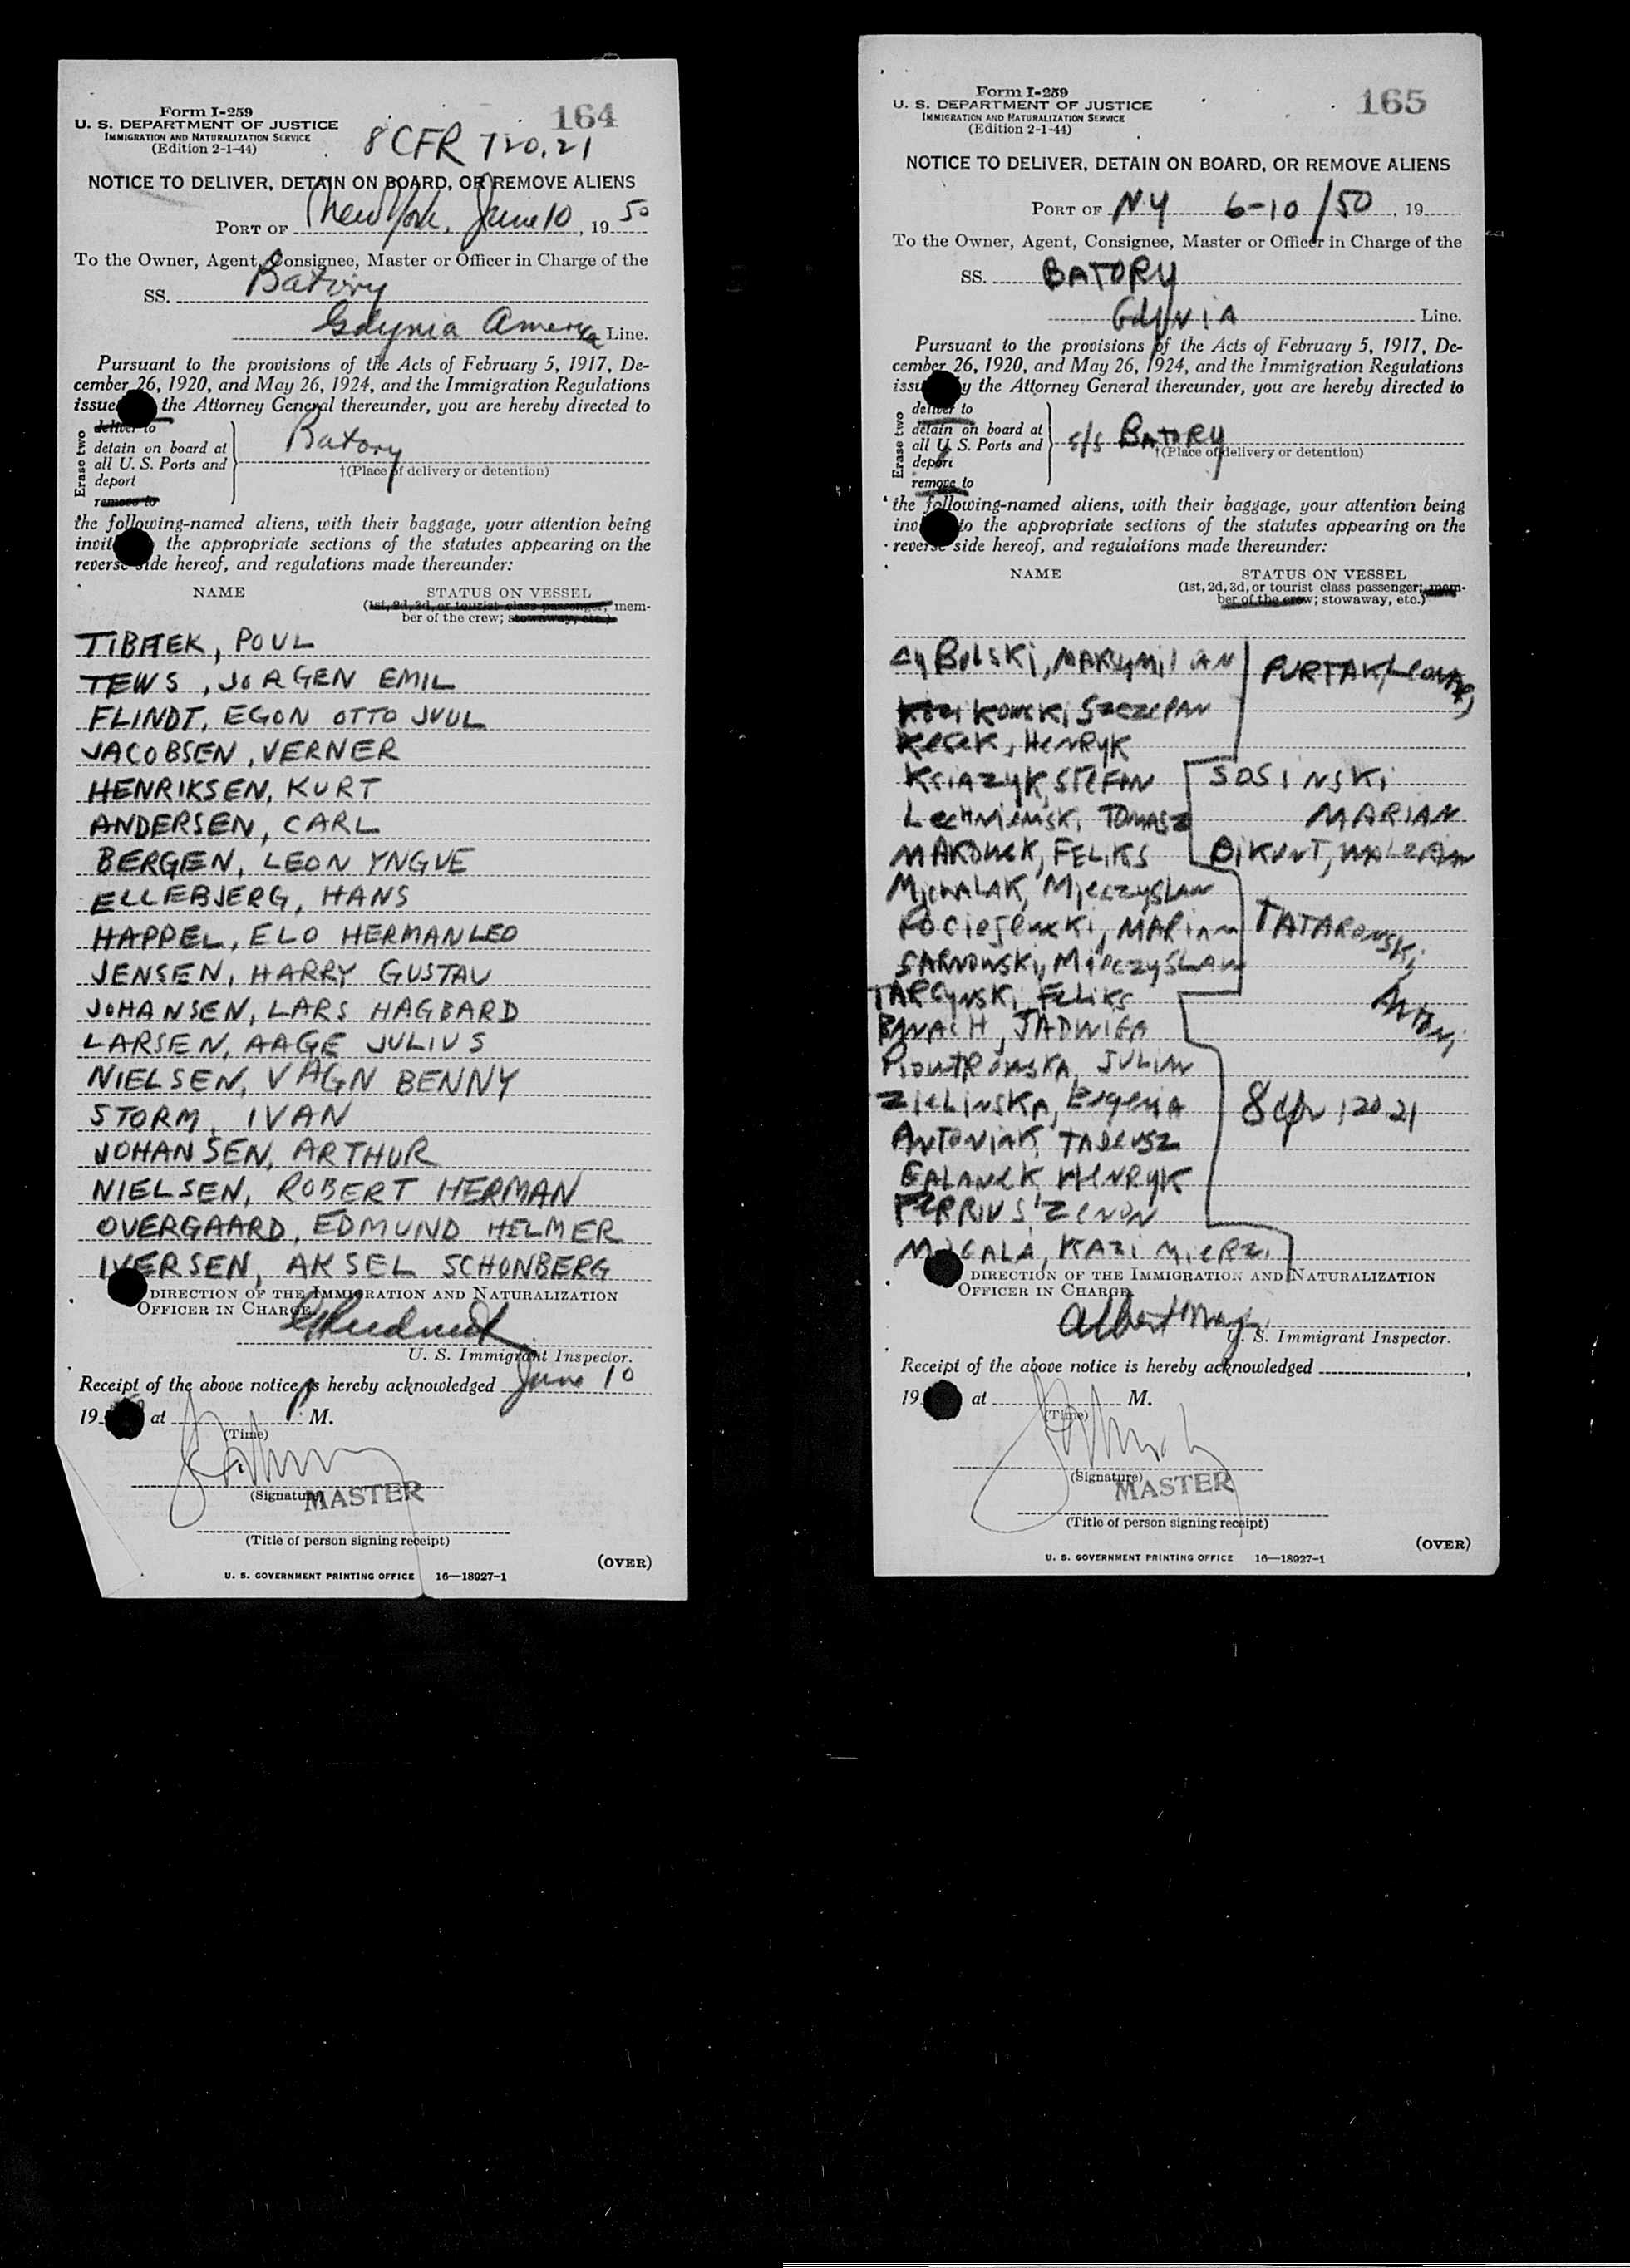 Form I-259
164
U. S. DEPARTMENT OF JUSTICE
IMMIGRATION AND NATURALIZATION SERVICE
(Edition 2-1-44)
8 CFR 120.21
NOTICE TO DELIVER, DETAIN ON BOARD, OR REMOVE ALIENS
PORT OF New York, June 10, 19 50
To the Owner, Agent, Consignee, Master or Officer in Charge of the
SS. Batory
Gdynia America Line.
Pursuant to the provisions of the Acts of February 5, 1917, De-
cember 26, 1920, and May 26, 1924, and the Immigration Regulations
issue the Attorney General thereunder, you are hereby directed to
Erase two
deliver to
detain on board at
all U. S. Ports and
deport
remove to
Batory
†(Place of delivery or detention)
the following-named aliens, with their baggage, your attention being
invit the appropriate sections of the statutes appearing on the
reverse side hereof, and regulations made thereunder:
NAME STATUS ON VESSEL
(1st, 2d, 3d, or tourist class passenger; mem-
ber of the crew; stowaway, etc.)
, POUL
TEWS, JORGEN EMIL
FLINDT, EGON OTTO JUUL
JACOBSEN, VERNER
HENRIKSEN, KURT
ANDERSEN, CARL
BERGEN, LEON YNGVE
ELLEBJERG, HANS
HAPPEL, ELO HERMAN LEO
JENSEN, HARRY GUSTAV
JOHANSEN, LARS HAGBARD
LARSEN, AAGE JULIUS
NIELSEN, VAGN BENNY
STORM, IVAN
JOHANSEN, ARTHUR
NIELSEN, ROBERT HERMAN
OVERGAARD, EDMUND HELMER
IVERSEN, AKSEL SCHONBERG
DIRECTION OF THE IMMIGRATION AND NATURALIZATION
OFFICER IN CHARGE
U. S. Immigrant Inspector.
Receipt of the above notice is hereby acknowledged June 10
19 at P M.
(Time)
(Signature)
MASTER
(Title of person signing receipt)
(OVER)
U. S. GOVERNMENT PRINTING OFFICE 16—18927-1
Form I-259
165
U. S. DEPARTMENT OF JUSTICE
IMMIGRATION AND NATURALIZATION SERVICE
(Edition 2-1-44)
NOTICE TO DELIVER, DETAIN ON BOARD, OR REMOVE ALIENS
PORT OF N.Y 6-10/50, 19
To the Owner, Agent, Consignee, Master or Officer in Charge of the
SS. BATORY
GdYNIA Line.
Pursuant to the provisions of the Acts of February 5, 1917, De-
cember 26, 1920, and May 26, 1924, and the Immigration Regulations
issu y the Attorney General thereunder, you are hereby directed to
Erase two
deliver to
detain on board at
all U. S. Ports and
deport
remove to
s/s BATORY
†(Place of delivery or detention)
the following-named aliens, with their baggage, your attention being
inv to the appropriate sections of the statutes appearing on the
reverse side hereof, and regulations made thereunder:
NAME STATUS ON VESSEL
(1st, 2d, 3d, or tourist class passenger; mem-
ber of the crew; stowaway, etc.)
CyBULSKi, MAKSYMILIAN PURTAK,
KoziKowski, SZCZEPAN
, HENRYK
KSIAZYK, STEFAN SOSiNSKi
TOMASZ MARIAN
FELIKS BiKUNT,
MichALAK, MiECZYSLAW
MARIAN TATAROWSKi,
SARNOWSKi, MiECZYSLAW
TARCYNSKi, FELIKS ANTONi
BANACH, JADWIGA
ZIELiNSKA, EUGENiA 8 cfr 120 21
ANTONIAK, TADEUSZ
HENRYK
ZENON
KAZiMiERZ
DIRECTION OF THE IMMIGRATION AND NATURALIZATION
OFFICER IN CHARGE.
Albert
U. S. Immigrant Inspector.
Receipt of the above notice is hereby acknowledged
19 at M.
(Time)
(Signature)
MASTER
(Title of person signing receipt)
(OVER)
U. S. GOVERNMENT PRINTING OFFICE 16—18927-1